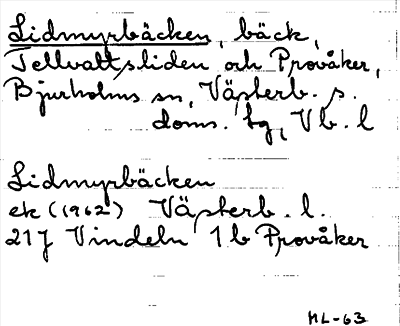 Lidmyrbäcken, bäck,
Tellvattsliden och Provåker,
Bjurholms sn, Västerb. s.
doms. tg, Vb. l
Lidmyrbäcken
ek (1962) Västerb. l.
21J Vindeln 1b Provåker
ML-63